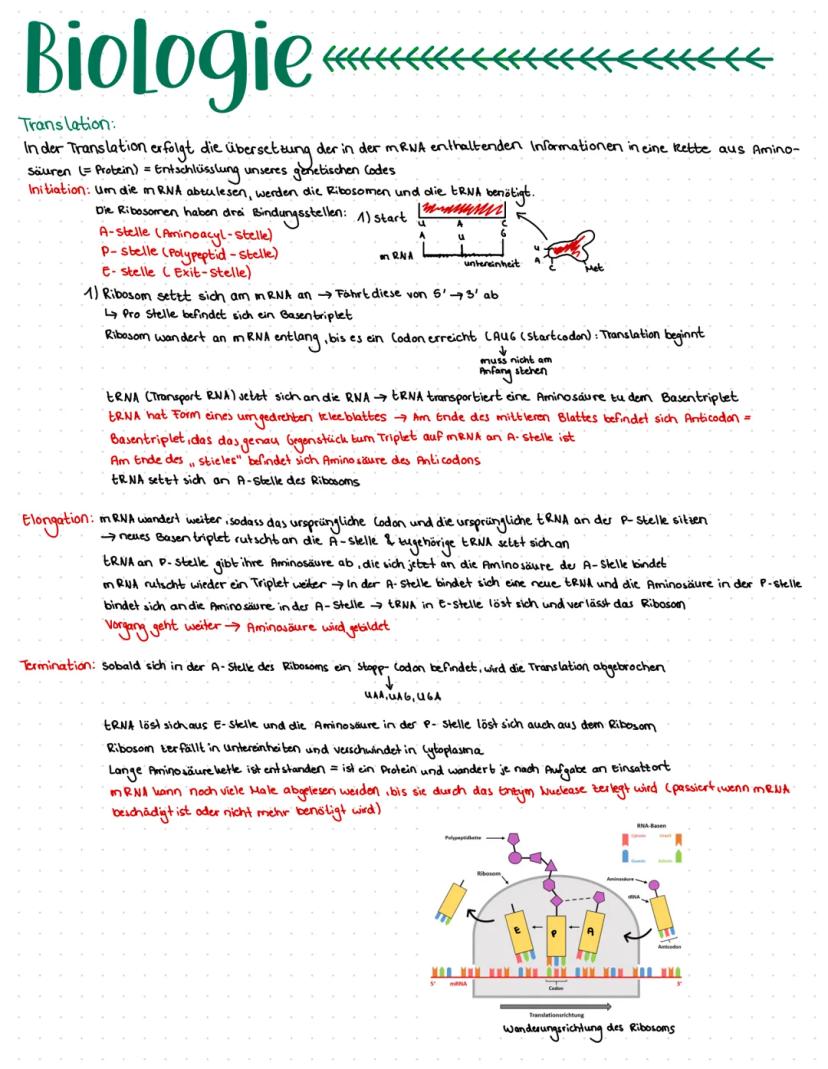 Biologie
Translation:
In der Translation erfolgt die Übersetzung der in der mRNA enthaltenden Informationen in eine Kette aus Amino-
säuren (= Protein) = Entschlüsslung unseres genetischen Codes
Initiation: Um die mRNA abzulesen, werden die Ribosomen und die tRNA benötigt.
Die Ribosomen haben drei Bindungsstellen: 1) Start
A-Stelle (Aminoacyl-Stelle)
P-Stelle (Polypeptid-Stelle)
E-Stelle (Exit-Stelle)
U A C
A U G
mRNA
untereinheit
U
A
C
Met
1) Ribosom setzt sich am mRNA an → Fährt diese von 5' → 3' ab
↳ Pro Stelle befindet sich ein Basentriplet
Ribosom wandert an mRNA entlang, bis es ein Codon erreicht (AUG (Startcodon): Translation beginnt
↓
muss nicht am
Anfang stehen
tRNA (Transport RNA) setzt sich an die RNA → tRNA transportiert eine Aminosäure zu dem Basentriplet
tRNA hat Form eines umgedrehten Kleeblattes → Am Ende des mittleren Blattes befindet sich Anticodon =
Basentriplet, das das genau Gegenstück zum Triplet auf mRNA an A-Stelle ist
Am Ende des „Stieles" befindet sich Aminosäure des Anticodons
tRNA setzt sich an A-Stelle des Ribosoms
Elongation: mRNA wandert weiter, sodass das ursprüngliche Codon und die ursprüngliche tRNA an der P-Stelle sitzen
→ neues Basentriplet rutscht an die A-Stelle & zugehörige tRNA setzt sich an
tRNA an P-Stelle gibt ihre Aminosäure ab, die sich jetzt an die Aminosäure der A-Stelle bindet
mRNA rutscht wieder ein Triplet weiter → In der A-Stelle bindet sich eine neue tRNA und die Aminosäure in der P-Stelle
bindet sich an die Aminosäure in der A-Stelle → tRNA in E-Stelle löst sich und verlässt das Ribosom
Vorgang geht weiter → Aminosäure wird gebildet
Termination: Sobald sich in der A-Stelle des Ribosoms ein Stopp-Codon befindet, wird die Translation abgebrochen
↓
UAA, UAG, UGA
tRNA löst sich aus E-Stelle und die Aminosäure in der P-Stelle löst sich auch aus dem Ribosom
Ribosom zerfällt in untereinheiten und verschwindet in Cytoplasma
Lange Aminosäurekette ist entstanden = ist ein Protein und wandert je nach Aufgabe an Einsatzort
mRNA kann noch viele Male abgelesen werden, bis sie durch das Enzym Nuclease zerlegt wird (passiert, wenn mRNA
beschädigt ist oder nicht mehr benötigt wird)
RNA-Basen
Cytosin Uracil
Guanin Adenin
Polypeptidkette
Ribosom
Aminosäure
tRNA
Anticodon
E P A
5' mRNA 3'
Codon
Translationsrichtung
Wanderungsrichtung des Ribosoms